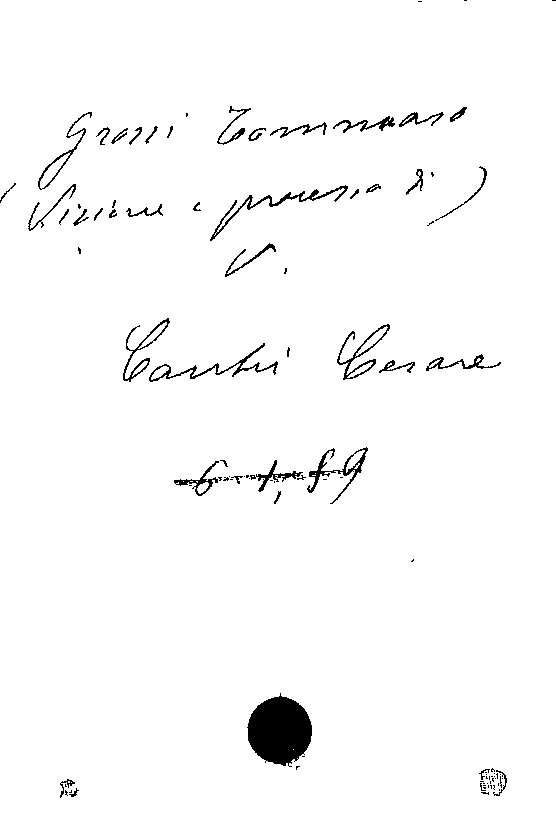 Grossi Tommaso
(Visione e processo di)
V.
Cantù Cesare
6 1, 89